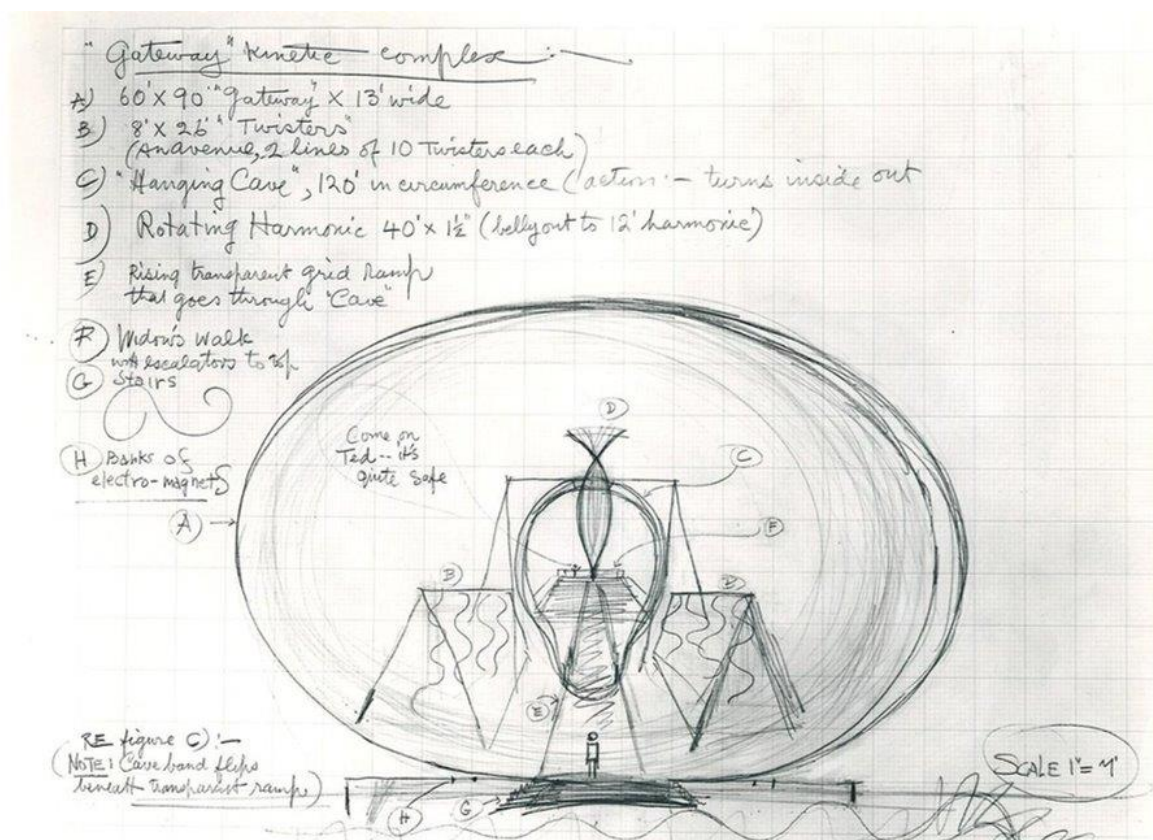 "Gateway" kinetic complex :-
A) 60' x 90' "Gateway" x 13' wide
B) 8' x 26' "Twisters"
(An avenue, 2 lines of 10 Twisters each)
C) "Hanging Cave", 120' in circumference (action:- turns inside out
D) Rotating Harmonic 40' x 1½" (belly out to 12' harmonic)
E) Rising transparent grid ramp
that goes through "Cave"
F) Widow's Walk
with escalators to top
G) Stairs
H) Banks of
electro-magnets
Come on
Ted -- it's
quite safe
D
C
F
A
B
B
E
RE figure C) :-
(NOTE: Cave band flips
beneath transparent ramp)
H
G
SCALE